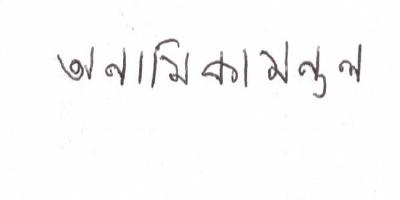 অনামিকা মন্ডল